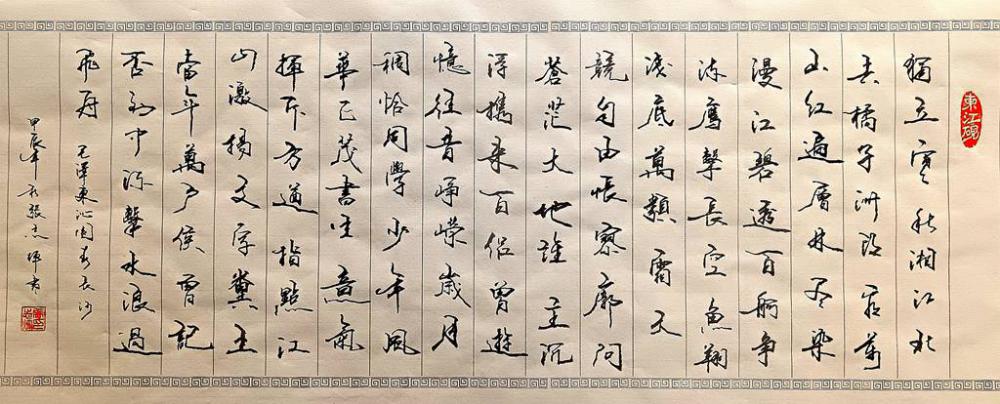 東江硯
獨立寒秋湘江北
去橘子洲頭看萬
山紅遍層林尽染
漫江碧透百舸争
流鷹擊長空魚翔
淺底萬類霜天
競自由悵寥廓問
蒼茫大地誰主沉
浮攜來百侣曾遊
憶往昔崢嶸歲月
稠恰同學少年風
華正茂書生意氣
揮斥方遒指點江
山激揚文字糞土
當年萬户侯曾記
否到中流擊水浪遏
飛舟 毛澤東沁園春長沙
甲辰年秋張志書